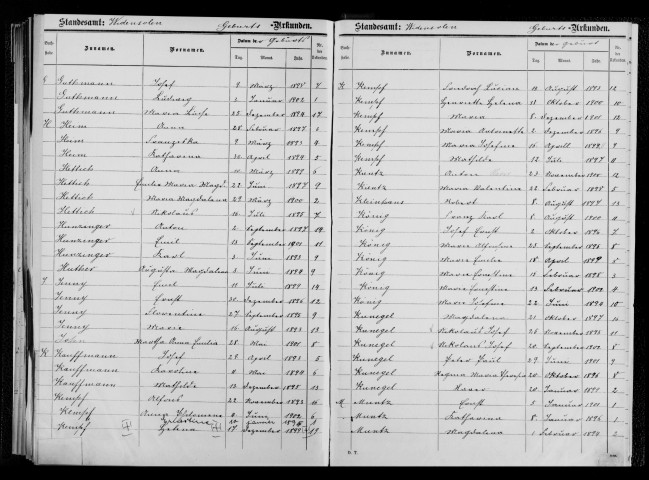 Standesamt: Widensolen Geburts-Urkunden.
Zunamen. Vornamen. Datum der Geburt
Tag. Monat. Jahr. Nr. der Urkunden.
G Guthmann Josef 9 März
Guthmann Ludwig 2 Januar 1902 1
Guthmann Maria Luise 25 Dezember 1894 17
H Heim Anna 28 Februar 1897
Heim März 1893
Heim Katharina 30 April 1894 5
Hettich Anna 10 1889 6
Hettich Emilie Maria Magd. 22 Juni 1897 9
Hettich Maria Magdalena 29 März 1900 2
Hettich Nikolaus 16 Juli 1895 7
Hunzinger Anton 2 September 1897 14
Hunzinger Emil 13 September 1901 11
Hunzinger Karl 3 Juni 1893 9
Huther Augusta Magdalena 3 Juni 1894 9
J Jenny Emil 11 Juli 1899 14
Jenny Ernst 30 Dezember 1896 12
Jenny Florentine 27 September 1895 9
Jenny Marie 16 August 1893 13
John Martha Anna Emilia 28 Mai 1901 5
K Kauffmann Josef 29 April 1893 5
Kauffmann Karoline 8 Mai 1894 6
Kauffmann Mathilde 13 Dezember 1895 13
Kempf Alfons 22 November 1893 16
Kempf Anna Philomena 9 Juni 1902 6
Kempf Helena 17 Dezember 1899 19
Standesamt: Widensolen Geburts-Urkunden.
Zunamen. Vornamen. Datum der Geburt
Tag. Monat. Jahr. Nr. der Urkunden.
K Kempf Lucian 10 August 1893 12
Kempf Henriette Helena 13 Oktober 1900 10
Kempf Maria 5 Dezember 1901 12
Kempf Maria Antonette 2 Dezember 1896 9
Kempf Maria Josefine 16 April 1892 9
Kempf Mathilde 12 Juli 1897 11
Kuntz Anton 23 November 1898 12
Kuntz Maria Valentine 22 Februar 1898 5
Kleinhans Robert 8 August 1897 13
König Franz Karl 5 August 1900 11
König Josef Ernst 2 Oktober 1894 7
König Maria Alfonsine 23 September 1896 8
König Maria Emilie 18 April 1898 5
König Maria Ernestine 12 Februar 1895 3
König Maria Ernestine 13 Februar 1902 4
König Maria Josefine 22 Juni 1890 10
Kuenegel Magdalena 21 Oktober 1897 16
Kuenegel Nikolaus Josef 26 November 1893 11
Kuenegel Nikolaus Josef 20 September 1902 8
Kuenegel Peter Paul 29 Juni 1901 9
Kuenegel Regina Maria Theresia 20 Oktober 1896 8
Kuenegel Xaver 20 Januar 1891 2
M Muntz Ernst 5 Januar 1901 1
Muntz Katharina 8 Januar 1896 1
Muntz Magdalena 1 Februar 1890 2